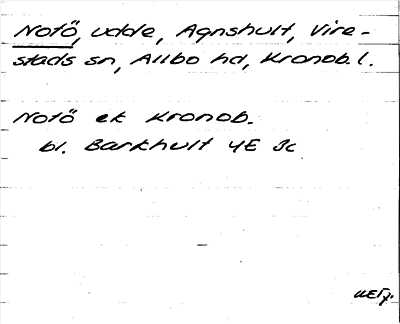 Notö, udde, Agnshult, Vire-
stads sn, Allbo hd, Kronob. l.
Notö ek Kronob.
bl. Barkhult 4E 3c